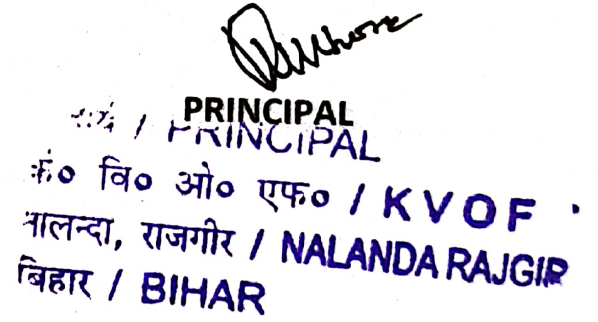 PRINCIPAL
/ PRINCIPAL
के० वि० ओ० एफ० / KVOF
नालन्दा, राजगीर / NALANDA RAJGIR
बिहार / BIHAR